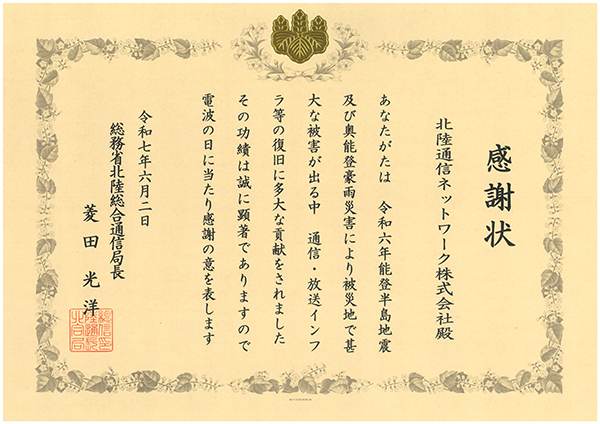 感謝状
北陸通信ネットワーク株式会社殿
あなたがたは　令和六年能登半島地震
及び奥能登豪雨災害により被災地で甚
大な被害が出る中　通信・放送インフ
ラ等の復旧に多大な貢献をされました
その功績は誠に顕著でありますので
電波の日に当たり感謝の意を表します
令和七年六月二日
総務省北陸総合通信局長
菱田光洋